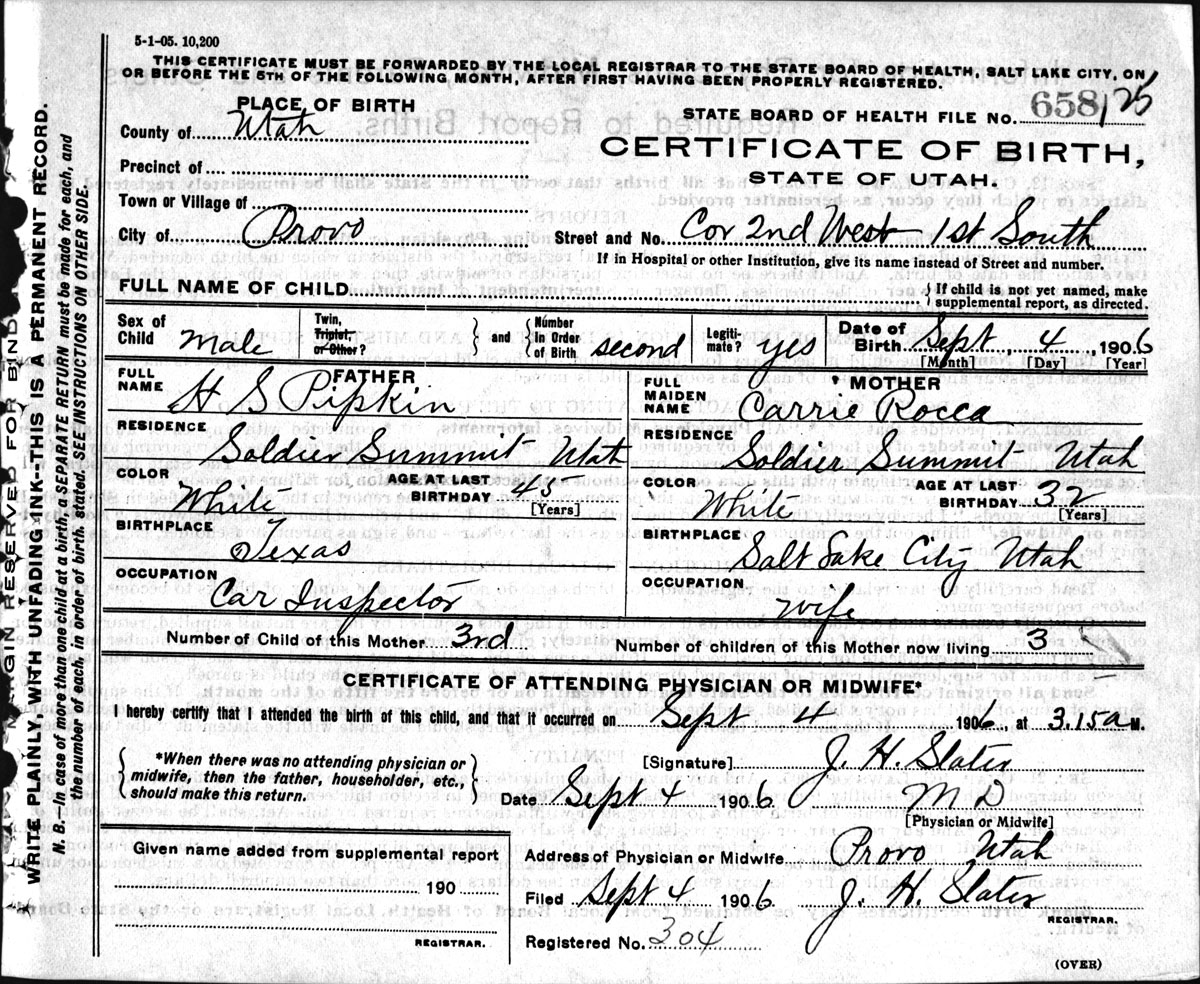 5-1-05. 10,200
THIS CERTIFICATE MUST BE FORWARDED BY THE LOCAL REGISTRAR TO THE STATE BOARD OF HEALTH, SALT LAKE CITY, ON
OR BEFORE THE 5TH OF THE FOLLOWING MONTH, AFTER FIRST HAVING BEEN PROPERLY REGISTERED.
PLACE OF BIRTH
County of Utah
Precinct of
Town or Village of
City of Provo
STATE BOARD OF HEALTH FILE NO. 658/25
CERTIFICATE OF BIRTH,
STATE OF UTAH.
Street and No. Cor 2nd West 1st South
If in Hospital or other Institution, give its name instead of Street and number.
FULL NAME OF CHILD
If child is not yet named, make
supplemental report, as directed.
Sex of Child Male
Twin, Triplet, or Other?
and Number in Order of Birth second
Legitimate? yes
Date of Birth Sept 4, 1906
[Month] [Day] [Year]
FATHER
FULL NAME H S Pipkin
RESIDENCE Soldier Summit Utah
COLOR White
AGE AT LAST BIRTHDAY 45
[Years]
BIRTHPLACE Texas
OCCUPATION Car Inspector
MOTHER
FULL MAIDEN NAME Carrie Rocca
RESIDENCE Soldier Summit Utah
COLOR White
AGE AT LAST BIRTHDAY 32
[Years]
BIRTHPLACE Salt Lake City Utah
OCCUPATION wife
Number of Child of this Mother 3rd
Number of children of this Mother now living 3
CERTIFICATE OF ATTENDING PHYSICIAN OR MIDWIFE*
I hereby certify that I attended the birth of this child, and that it occurred on Sept 4 1906, at 3.15 a M.
*When there was no attending physician or
midwife, then the father, householder, etc.,
should make this return.
[Signature] J. H. Slater
Date Sept 4 1906 M D
[Physician or Midwife]
Given name added from supplemental report
190
REGISTRAR.
Address of Physician or Midwife Provo Utah
Filed Sept 4 1906 J. H. Slater
REGISTRAR.
Registered No. 304
(OVER)
MARGIN RESERVED FOR BIND
WRITE PLAINLY, WITH UNFADING INK--THIS IS A PERMANENT RECORD.
N. B.--In case of more than one child at a birth, a SEPARATE RETURN must be made for each, and
the number of each, in order of birth, stated. SEE INSTRUCTIONS ON OTHER SIDE.